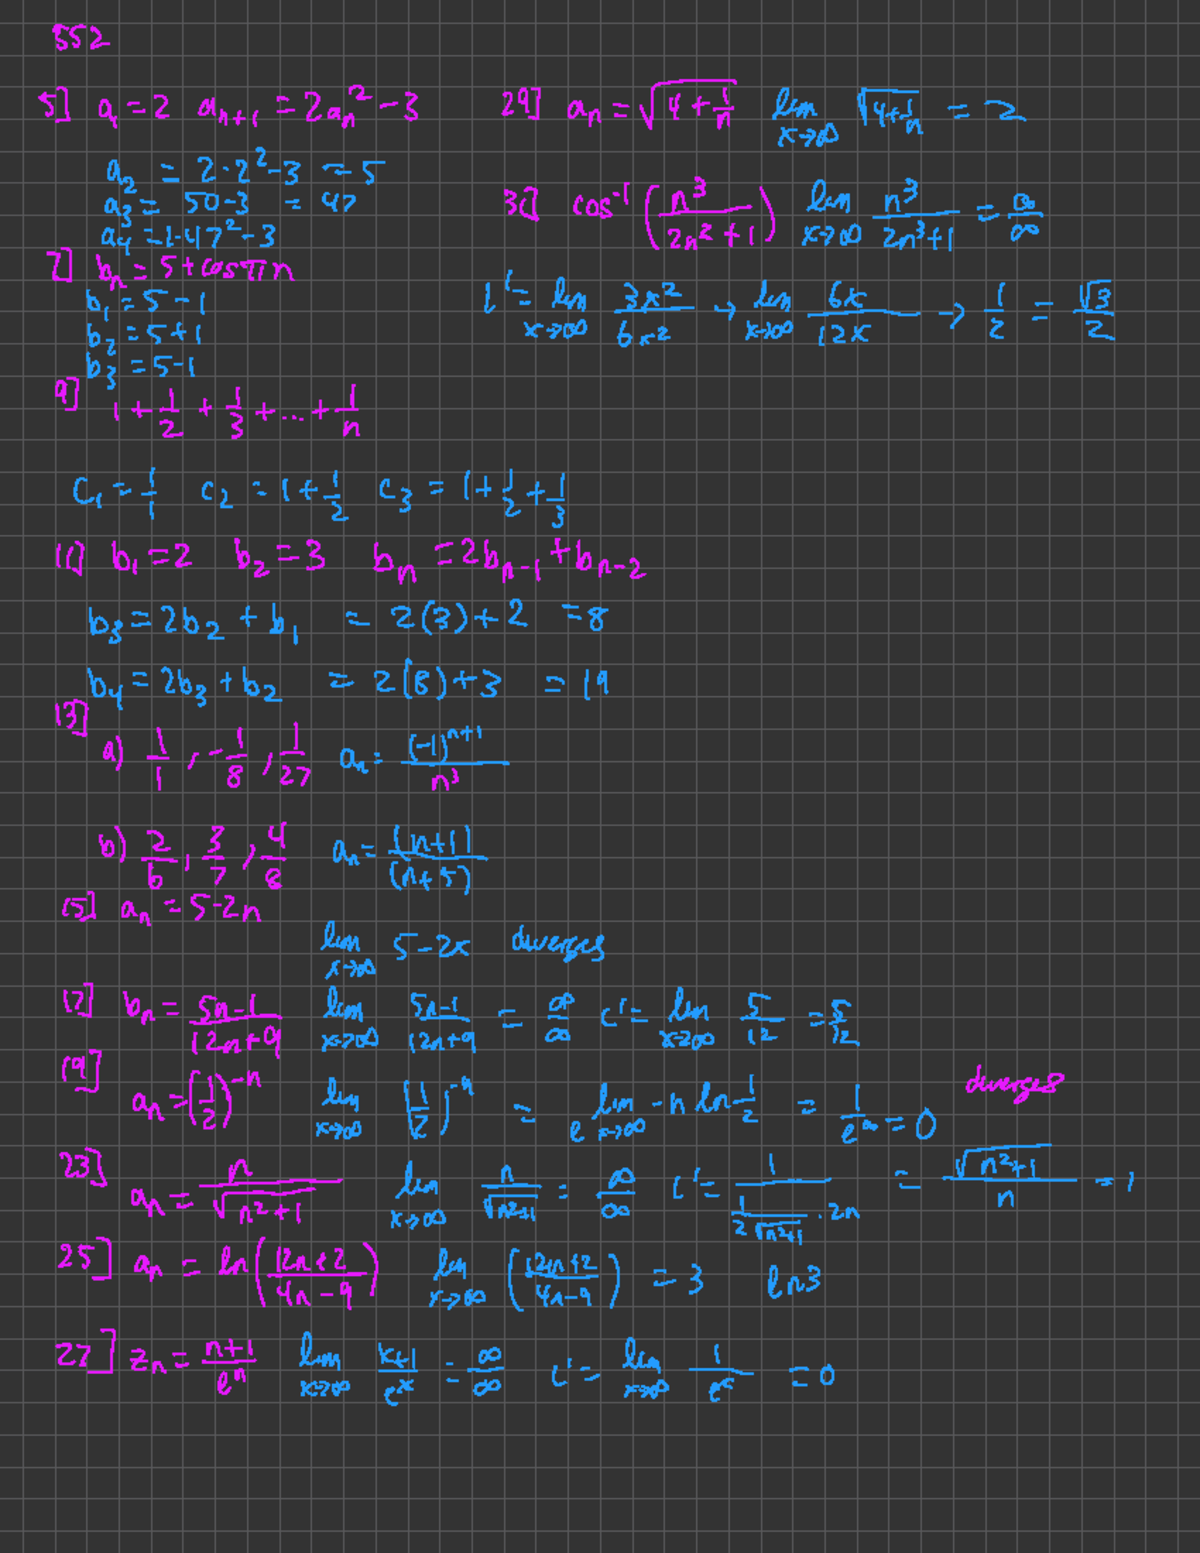 552
5] a₁ = 2 aₙ₊₁ = 2aₙ² - 3
a₂ = 2·2² - 3 = 5
a₃ = 50 - 3 = 47
a₄ = 2·47² - 3
7] bₙ = 5 + cos πn
b₁ = 5 - 1
b₂ = 5 + 1
b₃ = 5 - 1
9] 1 + 1/2 + 1/3 + ... + 1/n
C₁ = 1/1 C₂ = 1 + 1/2 C₃ = 1 + 1/2 + 1/3
11] b₁ = 2 b₂ = 3 bₙ = 2bₙ₋₁ + bₙ₋₂
b₃ = 2b₂ + b₁ = 2(3) + 2 = 8
b₄ = 2b₃ + b₂ = 2(8) + 3 = 19
13]
a) 1/1, -1/8, 1/27 aₙ = (-1)ⁿ⁺¹/n³
b) 2/6, 3/7, 4/8 aₙ = (n+1)/(n+5)
15] aₙ = 5 - 2n
lim x→∞ 5 - 2x diverges
17] bₙ = (5n-1)/(12n+9) lim x→∞ (5n-1)/(12n+9) = ∞/∞ L' = lim x→∞ 5/12 = 5/12
19] aₙ = (1/2)⁻ⁿ lim x→∞ (1/2)⁻ⁿ = e^(lim x→∞ -n ln 1/2) = 1/e^∞ = 0 diverges
23] aₙ = n/√(n²+1) lim x→∞ n/√(n²+1) = ∞/∞ L' = 1/(1/(2√(n²+1)) · 2n) = √(n²+1)/n = 1
25] aₙ = ln((12n+2)/(4n-9)) lim x→∞ ((12n+2)/(4n-9)) = 3 ln 3
27] zₙ = (n+1)/eⁿ lim x→∞ (x+1)/eˣ = ∞/∞ L' = lim x→∞ 1/eˣ = 0
29] aₙ = √(4 + 1/n) lim x→∞ √(4 + 1/n) = 2
30] cos⁻¹(n³/(2n³+1)) lim x→∞ n³/(2n³+1) = ∞/∞
L' = lim x→∞ 3x²/6x² → lim x→∞ 6x/12x → 1/2 = √3/2